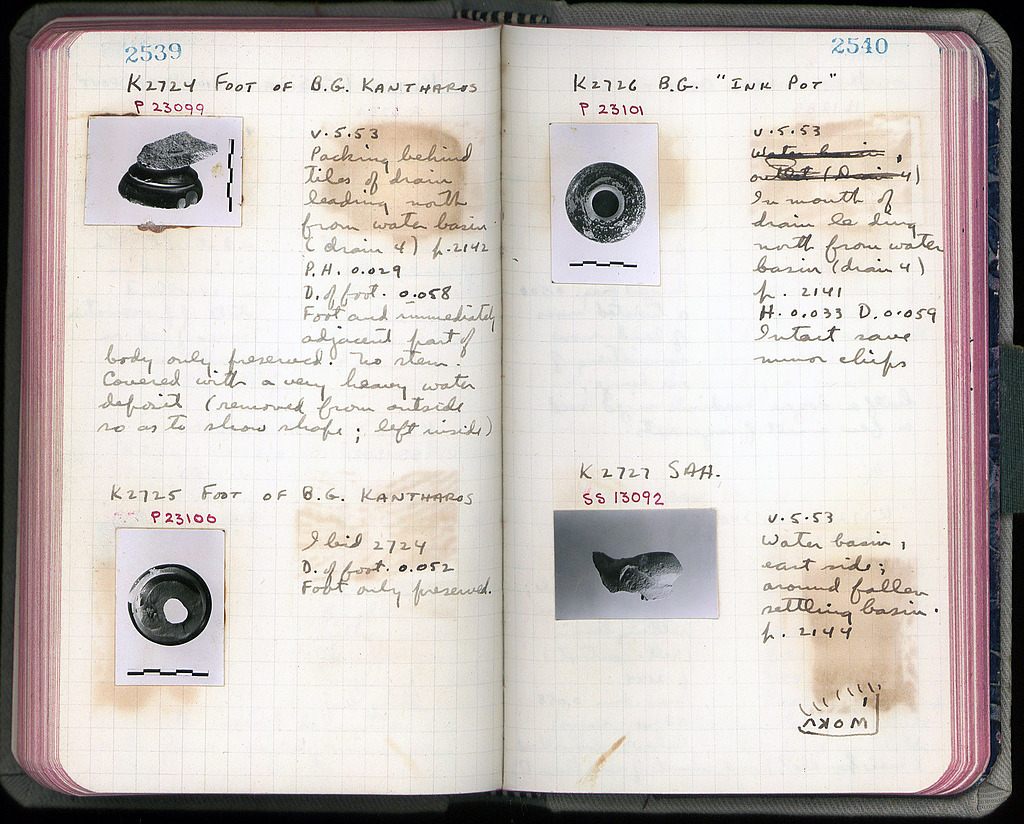 2539
K2724 FOOT OF B.G. KANTHAROS
P 23099
V.5.53
Packing behind
tiles of drain
leading north
from water basin
(drain 4) p. 2142
P.H. 0.029
D. of foot. 0.058
Foot and immediately
adjacent part of
body only preserved. No stem.
Covered with a very heavy water
deposit (removed from outside
so as to show shape; left inside)
K2725 FOOT OF B.G. KANTHAROS
P 23100
Ibid 2724
D. of foot. 0.052
Foot only preserved.
2540
K2726 B.G. "INK POT"
P 23101
V.5.53
Water basin,
outlet (drain 4)
In mouth of
drain leading
north from water
basin (drain 4)
p. 2141
H. 0.033 D. 0.059
Intact save
minor chips
K2727 SAH.
SS 13092
V.5.53
Water basin,
east side;
around fallen
settling basin.
p. 2144